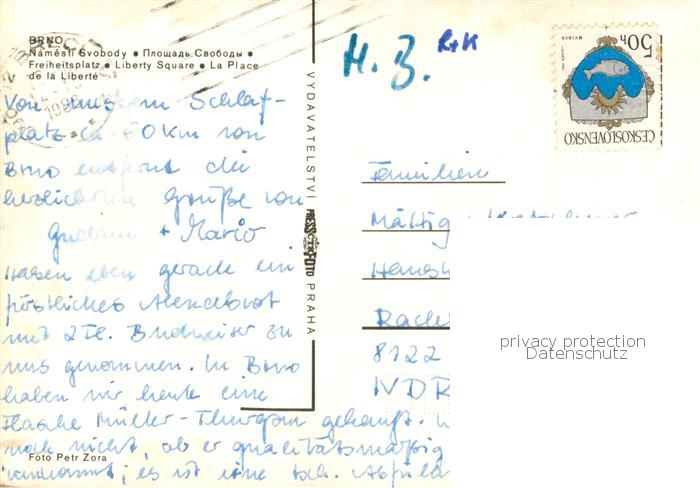 BRNO
Náměstí Svobody • Площадь Свободы •
Freiheitsplatz • Liberty Square • La Place
de la Liberté
H. B. R+K
50h
MYJAVA
ČESKOSLOVENSKO
VYDAVATELSTVÍ PRESSFOTO PRAHA
Von unserem Schlaf-
platz ca. 60 km von
Brno entfernt die
herzlichsten Grüße von
Gudrun + Mario
Haben eben gerade ein
köstliches Abendbrot
mit 2 Fl. Budweiser zu
uns genommen. In Brno
haben wir heute eine
Flasche Müller-Thurgau gekauft.
noch nicht, ob er qualitätsmäßig
es ist eine tsch. Abfüll
Familien
8122
Foto Petr Zora
privacy protection
Datenschutz